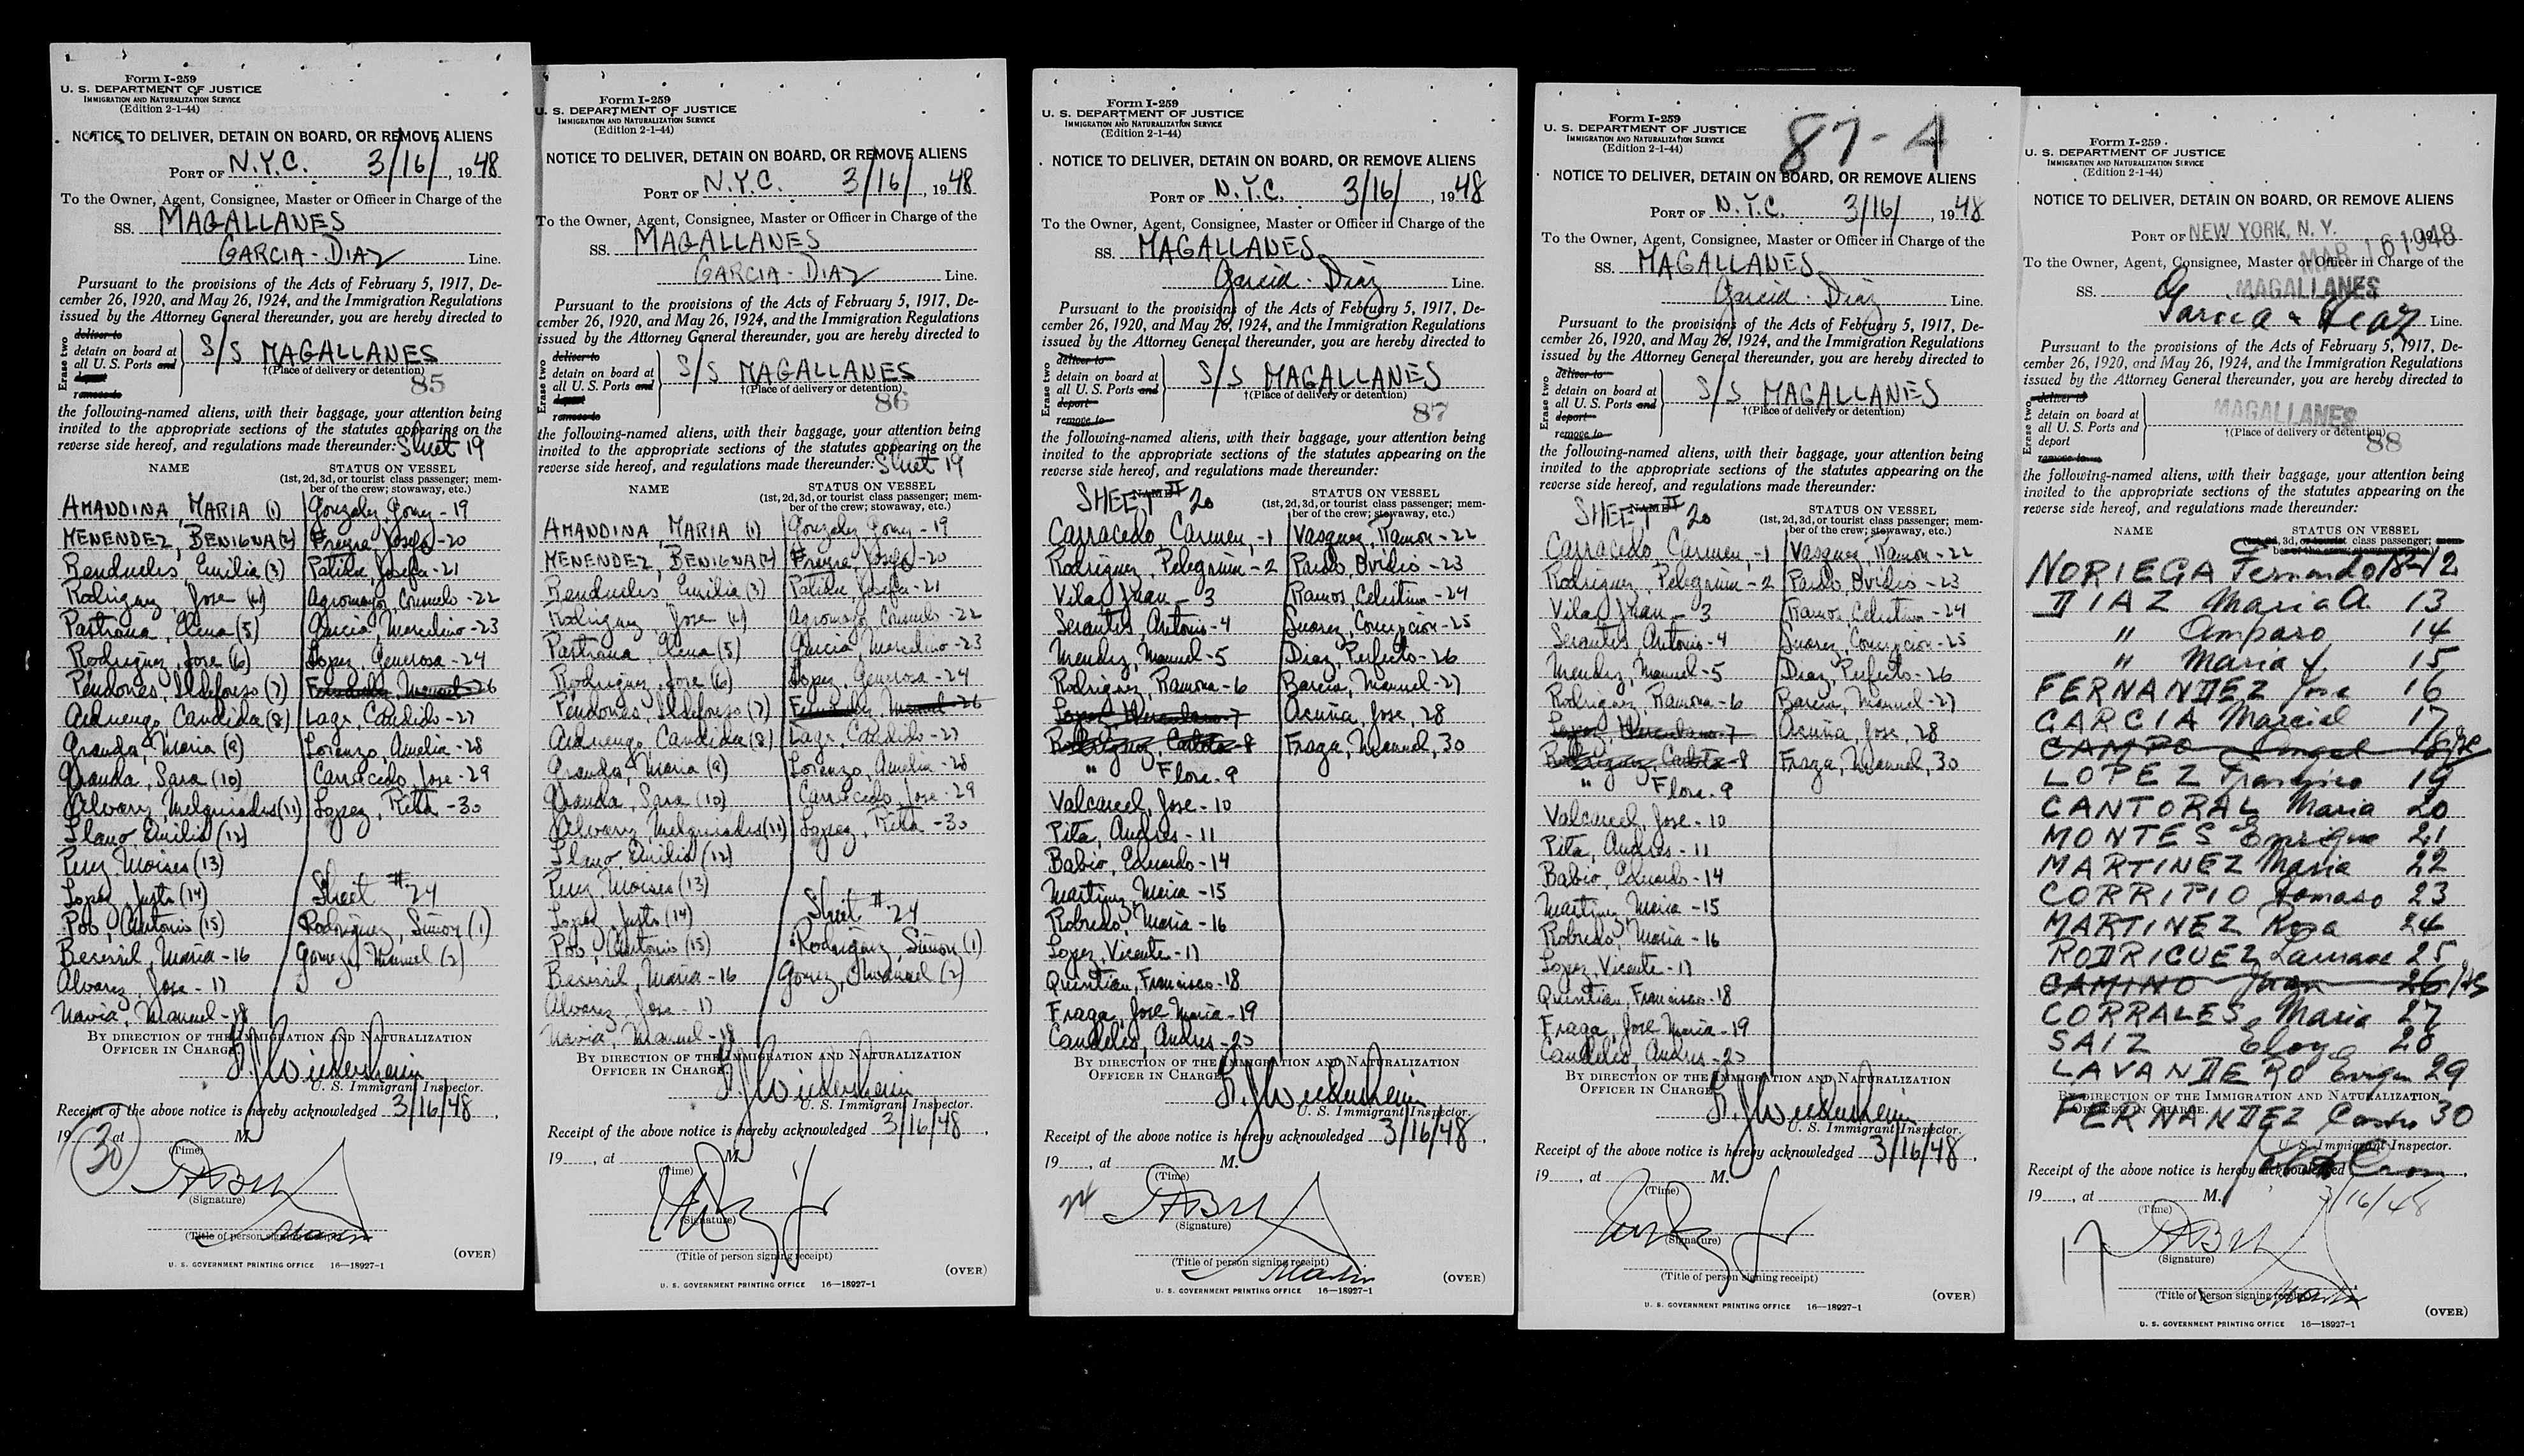 Form I-259
U. S. DEPARTMENT OF JUSTICE
IMMIGRATION AND NATURALIZATION SERVICE
(Edition 2-1-44)
NOTICE TO DELIVER, DETAIN ON BOARD, OR REMOVE ALIENS
PORT OF N.Y.C. 3/16/, 1948
To the Owner, Agent, Consignee, Master or Officer in Charge of the
SS. MAGALLANES
GARCIA-DIAZ Line.
Pursuant to the provisions of the Acts of February 5, 1917, De-
cember 26, 1920, and May 26, 1924, and the Immigration Regulations
issued by the Attorney General thereunder, you are hereby directed to
Erase two
deliver to
detain on board at
all U. S. Ports and
deport
remove to
S/S MAGALLANES
†(Place of delivery or detention)
85
the following-named aliens, with their baggage, your attention being
invited to the appropriate sections of the statutes appearing on the
reverse side hereof, and regulations made thereunder: Sheet 19
NAME STATUS ON VESSEL
(1st, 2d, 3d, or tourist class passenger; mem-
ber of the crew; stowaway, etc.)
AMANDINA, MARIA (1) Gonzalez, Gomy-19
MENENDEZ, BENIGNA (2) Freyre, Josefa-20
Rendueles Emilia (3) Patiño, Josefa-21
Rodriguez, Jose (4) Agromayor, Consuelo-22
Pastrana, Elena (5) Garcia, Marcelino-23
Rodriguez, Jose (6) Lopez, Generosa-24
Pendones, Ildefonso (7) Fernandez, Manuel-26
Arduengo, Candida (8) Lage, Candido-27
Granda, Maria (9) Lorenzo, Amelia-28
Granda, Sara (10) Carracedo, Jose-29
Alvarez, Melquiades (11) Lopez, Rita-30
Llano, Emilio (12)
Perez, Moises (13)
Lopez, Justo (14) Sheet #24
Pob, Antonio (15) Rodriguez, Simon (1)
Becerril, Maria-16 Gomez, Manuel (2)
Alvarez, Jose-17
Navia, Manuel-18
BY DIRECTION OF THE IMMIGRATION AND NATURALIZATION
OFFICER IN CHARGE.
U. S. Immigrant Inspector.
Receipt of the above notice is hereby acknowledged 3/16/48.
19 , at M.
30
(Time)
(Signature)
(Title of person signing receipt)
(OVER)
U. S. GOVERNMENT PRINTING OFFICE 16—18927-1
Form I-259
U. S. DEPARTMENT OF JUSTICE
IMMIGRATION AND NATURALIZATION SERVICE
(Edition 2-1-44)
NOTICE TO DELIVER, DETAIN ON BOARD, OR REMOVE ALIENS
PORT OF N.Y.C. 3/16/, 1948
To the Owner, Agent, Consignee, Master or Officer in Charge of the
SS. MAGALLANES
GARCIA-DIAZ Line.
Pursuant to the provisions of the Acts of February 5, 1917, De-
cember 26, 1920, and May 26, 1924, and the Immigration Regulations
issued by the Attorney General thereunder, you are hereby directed to
Erase two
deliver to
detain on board at
all U. S. Ports and
deport
remove to
S/S MAGALLANES
†(Place of delivery or detention)
86
the following-named aliens, with their baggage, your attention being
invited to the appropriate sections of the statutes appearing on the
reverse side hereof, and regulations made thereunder: Sheet 19
NAME STATUS ON VESSEL
(1st, 2d, 3d, or tourist class passenger; mem-
ber of the crew; stowaway, etc.)
AMANDINA, MARIA (1) Gonzalez, Gomy-19
MENENDEZ, BENIGNA (2) Freyre, Josefa-20
Rendueles Emilia (3) Patiño, Josefa-21
Rodriguez, Jose (4) Agromayor, Consuelo-22
Pastrana, Elena (5) Garcia, Marcelino-23
Rodriguez, Jose (6) Lopez, Generosa-24
Pendones, Ildefonso (7) Fernandez, Manuel-26
Arduengo, Candida (8) Lage, Candido-27
Granda, Maria (9) Lorenzo, Amelia-28
Granda, Sara (10) Carracedo, Jose-29
Alvarez, Melquiades (11) Lopez, Rita-30
Llano, Emilio (12)
Perez, Moises (13)
Lopez, Justo (14) Sheet #24
Pob, Antonio (15) Rodriguez, Simon (1)
Becerril, Maria-16 Gomez, Manuel (2)
Alvarez, Jose-17
Navia, Manuel-18
BY DIRECTION OF THE IMMIGRATION AND NATURALIZATION
OFFICER IN CHARGE.
U. S. Immigrant Inspector.
Receipt of the above notice is hereby acknowledged 3/16/48.
19 , at M.
(Time)
(Signature)
(Title of person signing receipt)
(OVER)
U. S. GOVERNMENT PRINTING OFFICE 16—18927-1
Form I-259
U. S. DEPARTMENT OF JUSTICE
IMMIGRATION AND NATURALIZATION SERVICE
(Edition 2-1-44)
NOTICE TO DELIVER, DETAIN ON BOARD, OR REMOVE ALIENS
PORT OF N.Y.C. 3/16/, 1948
To the Owner, Agent, Consignee, Master or Officer in Charge of the
SS. MAGALLANES
Garcia-Diaz Line.
Pursuant to the provisions of the Acts of February 5, 1917, De-
cember 26, 1920, and May 26, 1924, and the Immigration Regulations
issued by the Attorney General thereunder, you are hereby directed to
Erase two
deliver to
detain on board at
all U. S. Ports and
deport
remove to
S/S MAGALLANES
†(Place of delivery or detention)
87
the following-named aliens, with their baggage, your attention being
invited to the appropriate sections of the statutes appearing on the
reverse side hereof, and regulations made thereunder:
SHEET # 20
NAME STATUS ON VESSEL
(1st, 2d, 3d, or tourist class passenger; mem-
ber of the crew; stowaway, etc.)
Carracedo, Carmen,-1 Vasquez, Ramon-22
Rodriguez, Pelegrim-2 Pardo, Ovidio-23
Vila, Juan-3 Ramos, Celestino-24
Serantes, Antonio-4 Suarez, Concepcion-25
Mendez, Manuel-5 Diaz, Perfecto-26
Rodriguez, Ramona-6 Barcia, Manuel-27
Lopez, Herculano-7 Acuña, Jose, 28
Rodriguez, Calota-8 Fraga, Manuel, 30
" Flora-9
Valcarcel, Jose-10
Pita, Andres-11
Babio, Eduardo-14
Martinez, Maria-15
Robredo, Maria-16
Lopez, Vicente-17
Quintian, Francisco-18
Fraga, Jose Maria-19
BY DIRECTION OF THE IMMIGRATION AND NATURALIZATION
OFFICER IN CHARGE.
U. S. Immigrant Inspector.
Receipt of the above notice is hereby acknowledged 3/16/48.
19 , at M.
24
(Time)
(Signature)
(Title of person signing receipt)
(OVER)
U. S. GOVERNMENT PRINTING OFFICE 16—18927-1
Form I-259
U. S. DEPARTMENT OF JUSTICE
IMMIGRATION AND NATURALIZATION SERVICE
(Edition 2-1-44)
87-A
NOTICE TO DELIVER, DETAIN ON BOARD, OR REMOVE ALIENS
PORT OF N.Y.C. 3/16/, 1948
To the Owner, Agent, Consignee, Master or Officer in Charge of the
SS. MAGALLANES
Garcia-Diaz Line.
Pursuant to the provisions of the Acts of February 5, 1917, De-
cember 26, 1920, and May 26, 1924, and the Immigration Regulations
issued by the Attorney General thereunder, you are hereby directed to
Erase two
deliver to
detain on board at
all U. S. Ports and
deport
remove to
S/S MAGALLANES
†(Place of delivery or detention)
the following-named aliens, with their baggage, your attention being
invited to the appropriate sections of the statutes appearing on the
reverse side hereof, and regulations made thereunder:
SHEET # 20
NAME STATUS ON VESSEL
(1st, 2d, 3d, or tourist class passenger; mem-
ber of the crew; stowaway, etc.)
Carracedo, Carmen,-1 Vasquez, Ramon-22
Rodriguez, Pelegrim-2 Pardo, Ovidio-23
Vila, Juan-3 Ramos, Celestino-24
Serantes, Antonio-4 Suarez, Concepcion-25
Mendez, Manuel-5 Diaz, Perfecto-26
Rodriguez, Ramona-6 Barcia, Manuel-27
Lopez, Herculano-7 Acuña, Jose, 28
Rodriguez, Calota-8 Fraga, Manuel, 30
" Flora-9
Valcarcel, Jose-10
Pita, Andres-11
Babio, Eduardo-14
Martinez, Maria-15
Robredo, Maria-16
Lopez, Vicente-17
Quintian, Francisco-18
Fraga, Jose Maria-19
BY DIRECTION OF THE IMMIGRATION AND NATURALIZATION
OFFICER IN CHARGE.
U. S. Immigrant Inspector.
Receipt of the above notice is hereby acknowledged 3/16/48.
19 , at M.
(Time)
(Signature)
(Title of person signing receipt)
(OVER)
U. S. GOVERNMENT PRINTING OFFICE 16—18927-1
Form I-259
U. S. DEPARTMENT OF JUSTICE
IMMIGRATION AND NATURALIZATION SERVICE
(Edition 2-1-44)
NOTICE TO DELIVER, DETAIN ON BOARD, OR REMOVE ALIENS
PORT OF NEW YORK, N. Y. MAR 16 1948
To the Owner, Agent, Consignee, Master or Officer in Charge of the
SS. MAGALLANES
Garcia & Diaz Line.
Pursuant to the provisions of the Acts of February 5, 1917, De-
cember 26, 1920, and May 26, 1924, and the Immigration Regulations
issued by the Attorney General thereunder, you are hereby directed to
Erase two
deliver to
detain on board at
all U. S. Ports and
deport
remove to
MAGALLANES
†(Place of delivery or detention)
88
the following-named aliens, with their baggage, your attention being
invited to the appropriate sections of the statutes appearing on the
reverse side hereof, and regulations made thereunder:
NAME STATUS ON VESSEL
(1st, 2d, 3d, or tourist class passenger; mem-
ber of the crew; stowaway, etc.)
NORIEGA Fernando 18-12
DIAZ Maria A. 13
" Amparo 14
" Maria Y. 15
FERNANDEZ Jose 16
GARCIA Marcial 17
CAMPO Angel 18
LOPEZ Francisco 19
CANTORAL Maria 20
MONTES Enrique 21
MARTINEZ Maria 22
CORRIPIO Tomaso 23
MARTINEZ Rosa 24
RODRIGUEZ 25
CAMINO Juan 26
CORRALES Maria 27
SAIZ Eloy 28
LAVANDERO 29
BY DIRECTION OF THE IMMIGRATION AND NATURALIZATION
OFFICER IN CHARGE.
FERNANDEZ Casto 30
U. S. Immigrant Inspector.
Receipt of the above notice is hereby acknowledged
19 , at M. 3/16/48
(Time)
17
(Signature)
(Title of person signing receipt)
(OVER)
U. S. GOVERNMENT PRINTING OFFICE 16—18927-1